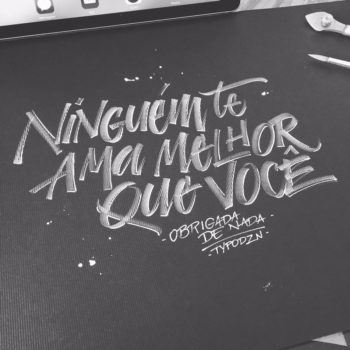 NINGUÉM TE
AMA MELHOR
QUE VOCÊ
- OBRIGADA
DE NADA -
- TYPODZN -